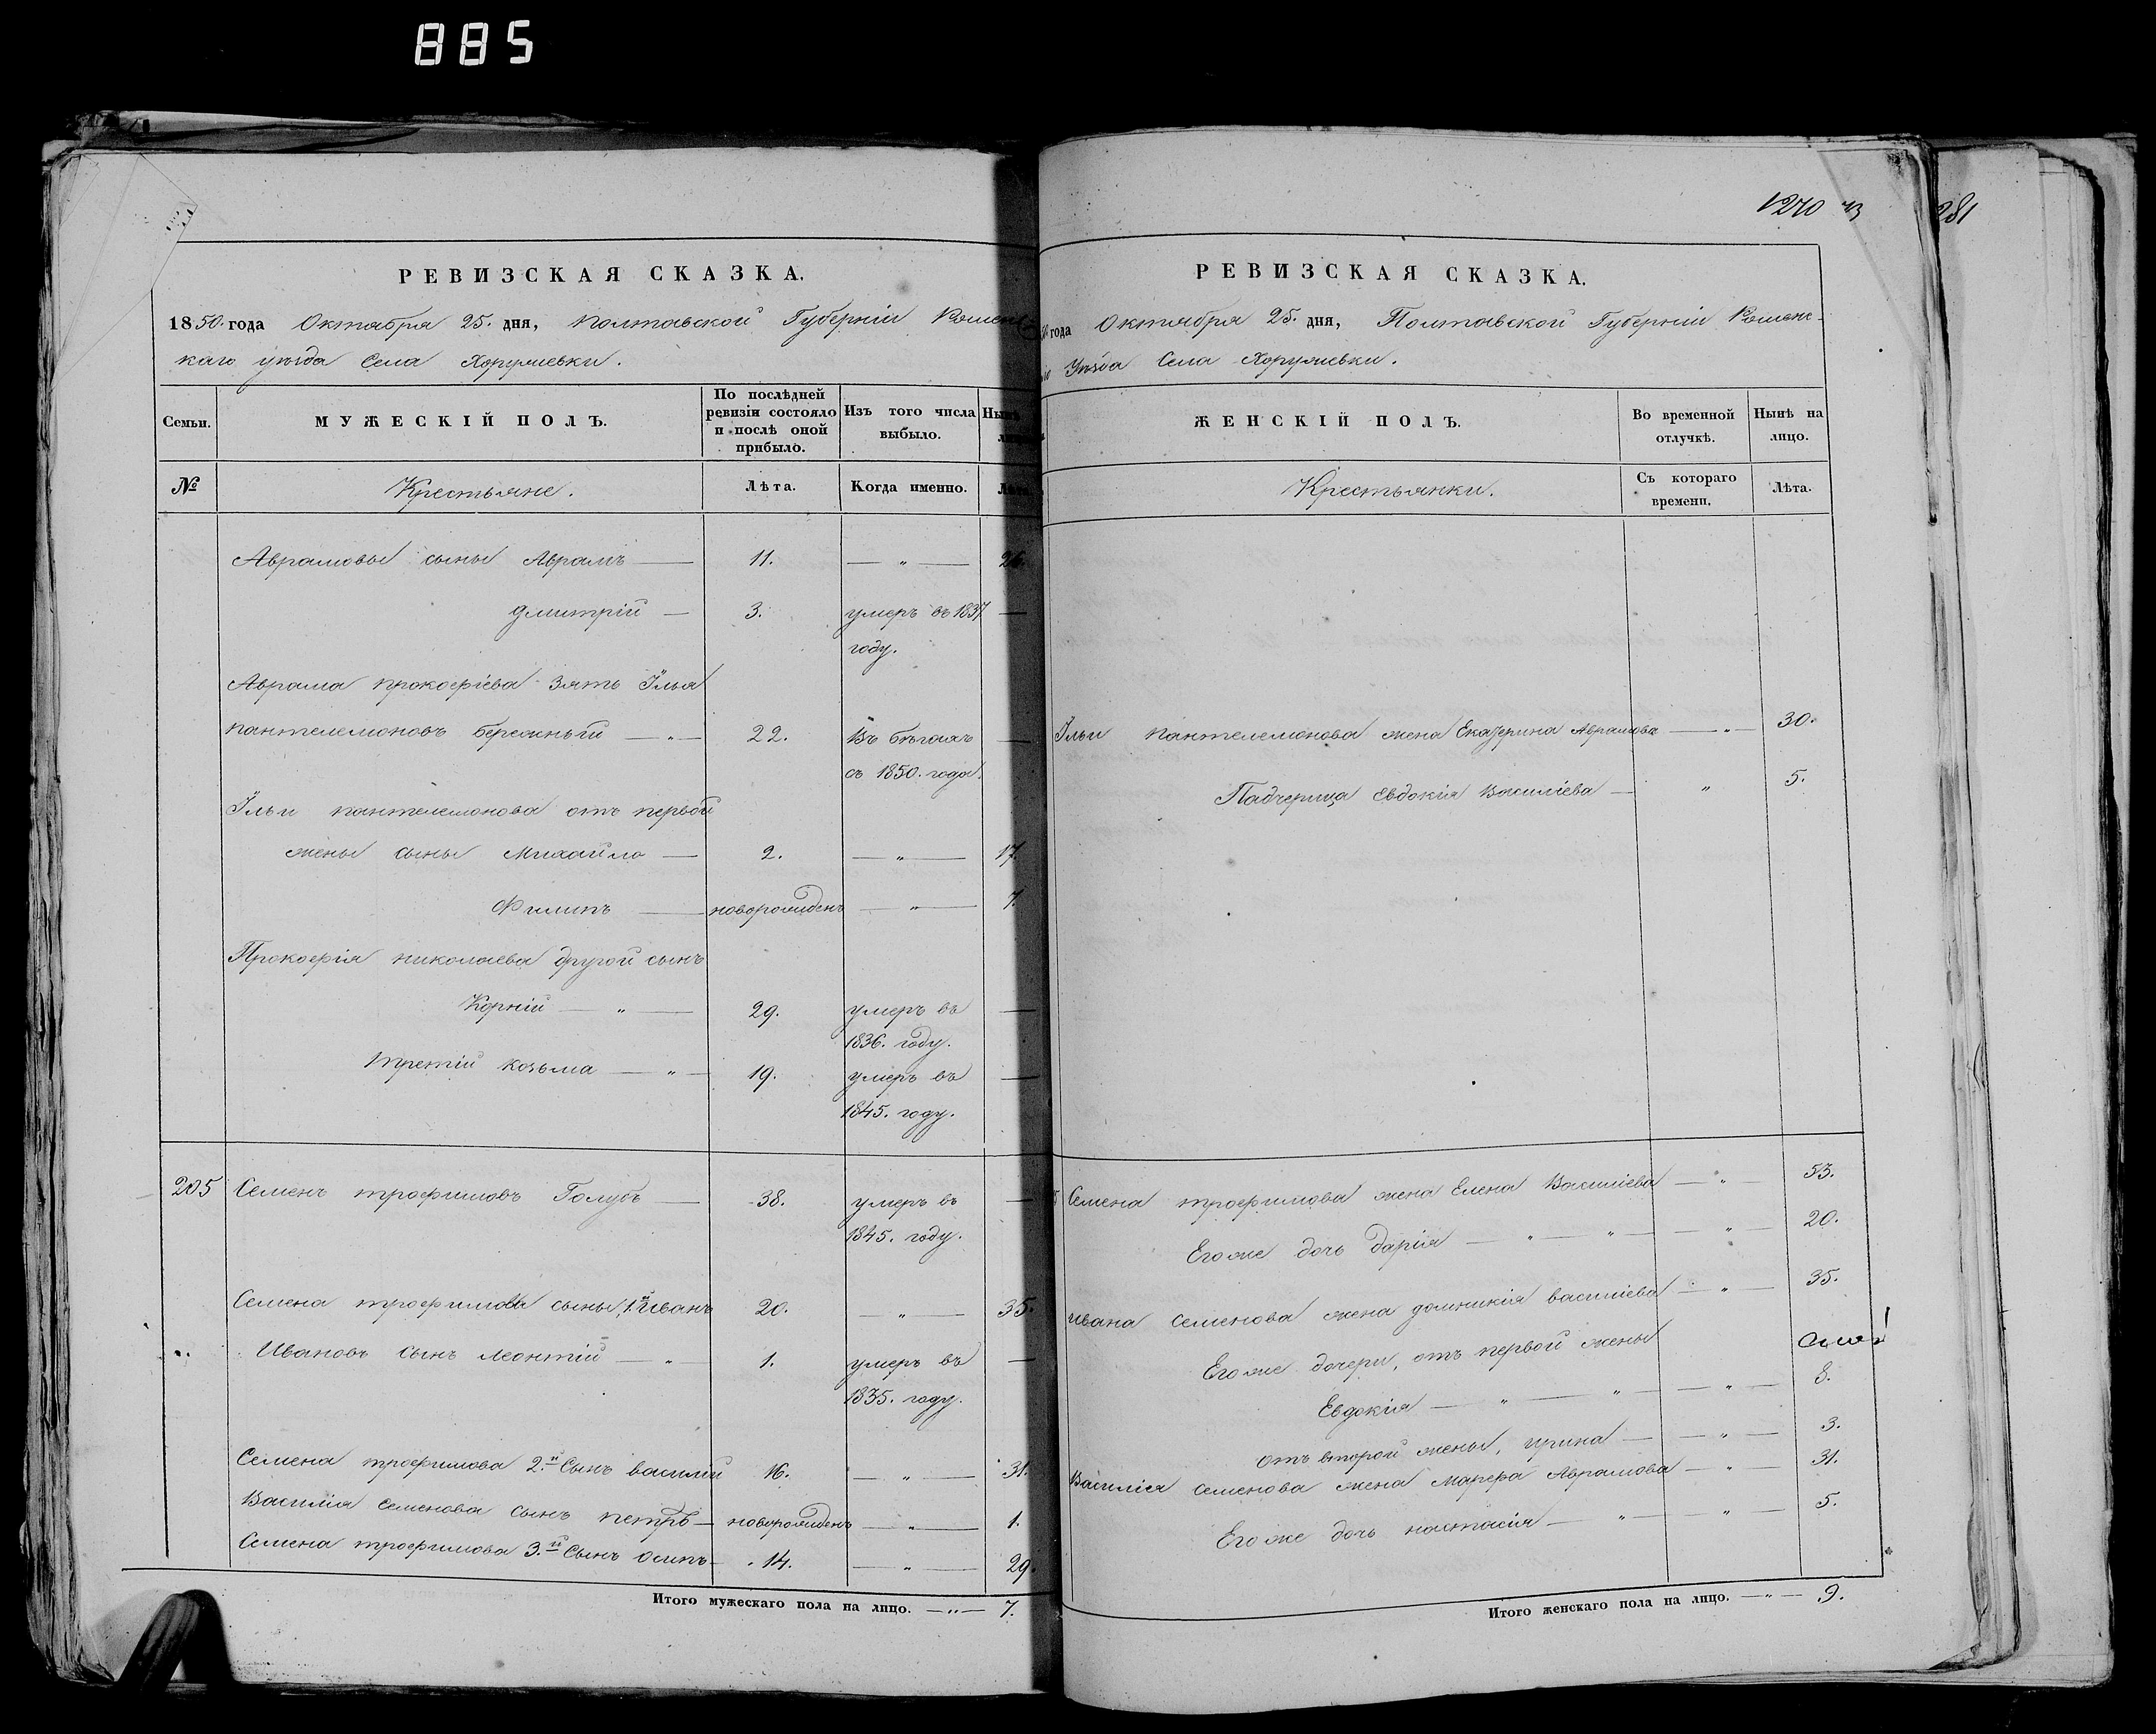 885
РЕВИЗСКАЯ СКАЗКА.
1850. года Октября 25. дня, Полтавской Губерніи Ромен-
каго уѣзда Села Хоружевки.
Семьи.
МУЖЕСКІЙ ПОЛЪ.
По послѣдней ревизіи состояло и послѣ оной прибыло.
Изъ того числа выбыло.
Нынѣ
№
Крестьяне.
Лѣта.
Когда именно.
Лѣта.
Аврамовы сыны Аврамъ — 11. — „ — 26.
Дмитрій — 3. умеръ въ 1837 —
году.
Аврама Прокофіева зять Илья
Пантелемоновъ Бережный — „ — 22. Въ бѣгахъ —
съ 1850. года.
Ильи Пантелемонова отъ первой
жены сыны Михайло — 2. — „ — 17.
Филипъ — новорожденъ — „ — 7.
Прокофія Николаева другой сынъ
Корній — „ — 29. умеръ въ —
1836. году.
третій Козьма — „ — 19. умеръ въ —
1845. году.
205 Семенъ Трофимовъ Голубъ — 38. умеръ въ —
1845. году.
Семена Трофимова сыны, 1.й Иванъ 20. — „ — 35.
Ивановъ сынъ Леонтій — „ 1. умеръ въ —
1835. году.
Семена Трофимова 2.й Сынъ Василий 16. — „ — 31.
Василія Семенова сынъ Петръ — новорожденъ — „ — 1.
Семена Трофимова 3.й Сынъ Осипъ — 14. — „ — 29.
Итого мужескаго пола на лицо. — „ — 7.
1270 281
РЕВИЗСКАЯ СКАЗКА.
года Октября 25. дня, Полтавской Губерніи Роменс-
Уѣзда Села Хоружевки.
ЖЕНСКІЙ ПОЛЪ.
Во временной отлучкѣ.
Нынѣ на лицо.
Крестьянки.
Съ котораго времени.
Лѣта.
Ильи Пантелемонова жена Екатерина Аврамова — „ — 30.
Падчерица Евдокія Василіева — „ 5.
Семена Трофимова жена Елена Василіева — „ — 53.
Его же дочь Дарія — „ — „ — „ — 20.
Ивана Семенова жена Домникія Василіева — „ — 35.
Его же дочери, отъ первой жены
Евдокія — „ — „ — „ — 8.
отъ второй жены, Ирина — „ — 3.
Василія Семенова жена Марфа Аврамова — „ — 31.
Его же дочь Настасія — „ — „ — 5.
Итого женскаго пола на лицо. — „ — 9.